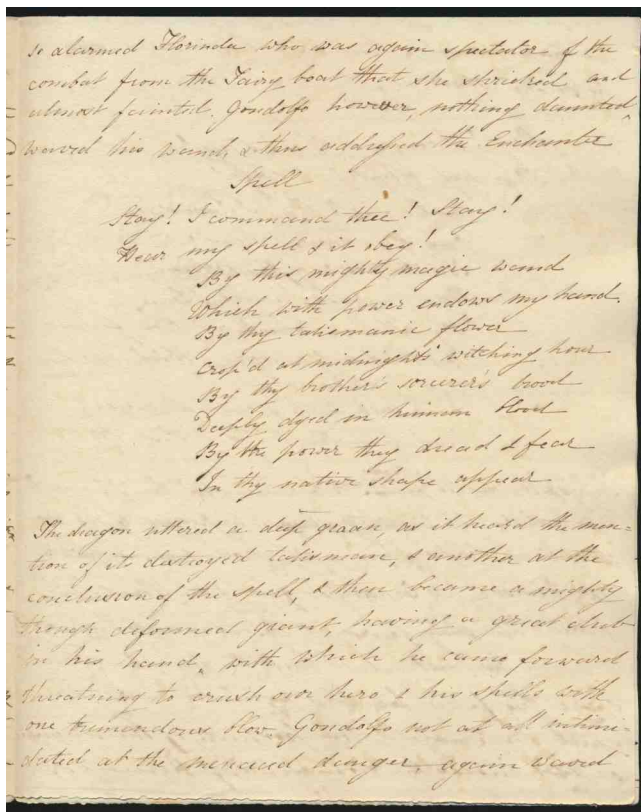 so alarmed Florinda who was again spectator of the
combat from the Fairy boat that she shrieked and
almost fainted. Gondolfo however, nothing daunted,
waved his wand, & thus addressed the Enchanter
Spell
Stay! I command thee! Stay!
Hear my spell & it obey!
By this mighty magic wand
Which with power endows my hand.
By thy talismanic flower
Crop'd at midnights witching hour
By thy brother's sorcerer's brood
Deeply dyed in human blood
By the power they dread & fear
In thy native shape appear
The dragon uttered a deep groan, as it heard the men-
tion of its destroyed talisman, & another at the
conclusion of the spell, & then became a mighty
though deformed giant, having a great club
in his hand, with which he came forward
threatning to crush our hero & his spells with
one tremendous blow. Gondolfo not at all intimi-
dated at the menaced danger, again waved